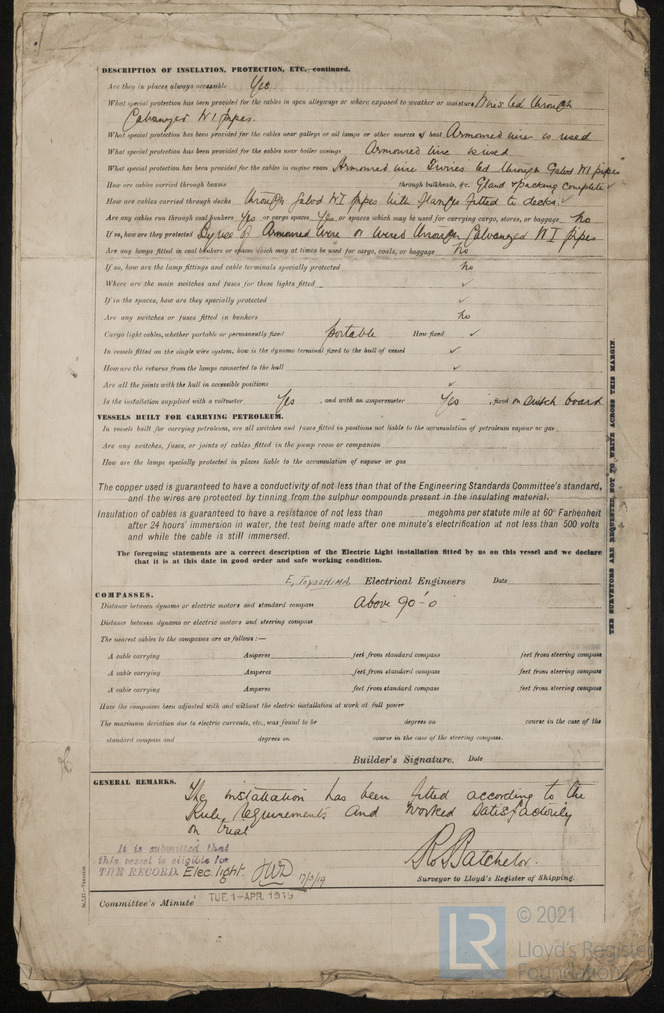 DESCRIPTION OF INSULATION, PROTECTION, ETC.—continued.
Are they in places always accessible Yes.
What special protection has been provided for the cables in open alleyways or where exposed to weather or moisture Wires led through
Galvanized W I pipes.
What special protection has been provided for the cables near galleys or oil lamps or other sources of heat Armoured wire is used
What special protection has been provided for the cables near boiler casings Armoured wire is used
What special protection has been provided for the cables in engine room Armoured wire led through Galvd WI pipes
How are cables carried through beams through bulkheads, &c. Gland & packing complete ✓
How are cables carried through decks through Galvd WI pipes with flanges fitted to decks. ✓
Are any cables run through coal bunkers Yes or cargo spaces Yes or spaces which may be used for carrying cargo, stores, or baggage No
If so, how are they protected By use of Armoured Wire or Wires through Galvanized W I pipes
Are any lamps fitted in coal bunkers or spaces which may at times be used for cargo, coals, or baggage No
If so, how are the lamp fittings and cable terminals specially protected No
Where are the main switches and fuses for these lights fitted ✓
If in the spaces, how are they specially protected ✓
Are any switches or fuses fitted in bunkers No
Cargo light cables, whether portable or permanently fixed portable How fixed ✓
In vessels fitted on the single wire system, how is the dynamo terminal fixed to the hull of vessel ✓
How are the returns from the lamps connected to the hull ✓
Are all the joints with the hull in accessible positions ✓
Is the installation supplied with a voltmeter Yes , and with an amperemeter Yes , fixed on switch board
VESSELS BUILT FOR CARRYING PETROLEUM.
In vessels built for carrying petroleum, are all switches and fuses fitted in positions not liable to the accumulation of petroleum vapour or gas
Are any switches, fuses, or joints of cables fitted in the pump room or companion
How are the lamps specially protected in places liable to the accumulation of vapour or gas
The copper used is guaranteed to have a conductivity of not less than that of the Engineering Standards Committee's standard,
and the wires are protected by tinning from the sulphur compounds present in the insulating material.
Insulation of cables is guaranteed to have a resistance of not less than megohms per statute mile at 60° Farhenheit
after 24 hours' immersion in water, the test being made after one minute's electrification at not less than 500 volts
and while the cable is still immersed.
The foregoing statements are a correct description of the Electric Light installation fitted by us on this vessel and we declare
that it is at this date in good order and safe working condition.
E. TOYOSHIMA Electrical Engineers Date
COMPASSES.
Distance between dynamo or electric motors and standard compass Above 90'-0
Distance between dynamo or electric motors and steering compass
The nearest cables to the compasses are as follows:—
A cable carrying Amperes feet from standard compass feet from steering compass
A cable carrying Amperes feet from standard compass feet from steering compass
A cable carrying Amperes feet from standard compass feet from steering compass
Have the compasses been adjusted with and without the electric installation at work at full power
The maximum deviation due to electric currents, etc., was found to be degrees on course in the case of the
standard compass and degrees on course in the case of the steering compass.
Builder's Signature. Date
GENERAL REMARKS.
The installation has been fitted according to the
Rule Requirements and Worked Satisfactorily
on trial
It is submitted that
this vessel is eligible for
THE RECORD. Elec. light. JWD 17/3/19
R. S. Batchelor.
Surveyor to Lloyd's Register of Shipping.
Committee's Minute TUE. 1-APR. 1919
THE SURVEYORS ARE REQUESTED NOT TO WRITE ACROSS THIS MARGIN.
LR
© 2021
Lloyd's Register
Foundation